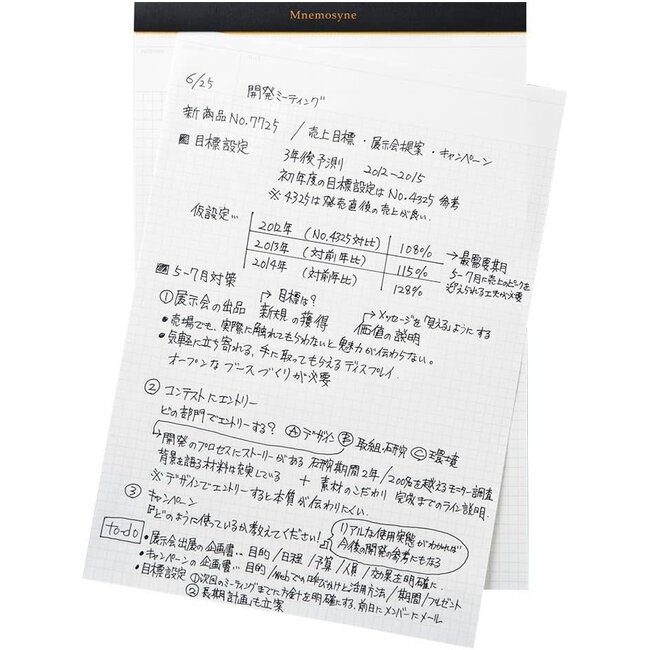 Mnemosyne
6/25 開発ミーティング
新商品No.7725 / 売上目標・展示会提案・キャンペーン
目標設定 3年後予測 2012-2015
初年度の目標設定はNo.4325参考
※4325は発売直後の売上が良い.
仮設定…
2012年 (No.4325対比) 108%
2013年 (対前年比) 115%
2014年 (対前年比) 128%
→最需要期
5-7月に売上のピークを
迎えられる工夫が必要
5-7月対策
→目標は? →メッセージを「見える」ようにする
①展示会の出品 新規の獲得 価値の説明
•売場でも、実際に触れてもらわないと魅力が伝わらない。
•気軽に立ち寄れる、手に取ってもらえるディスプレイ.
オープンなブースづくりが必要
②コンテストにエントリー
どの部門でエントリーする? Ⓐデザイン Ⓑ取組・研究 Ⓒ環境
→開発のプロセスにストーリーがある 研究期間2年/200%を越えるモニター調査
背景を語る材料は充実している + 素材のこだわり 完成までのライン説明.
※デザインでエントリーすると本質が伝わりにくい.
③キャンペーン
『どのように使っているか教えてください!』
リアルな使用実態がわかれば
今後の開発の参考にもなる
to-do
•展示会出展の企画書… 目的/日程/予算/人員/効果を明確に.
•キャンペーンの企画書… 目的/Webでの呼びかけと活用方法/期間/プレゼント
•目標設定 ①次回のミーティングまでに方針を明確にする.前日にメンバーにメール
②「長期計画」も立案